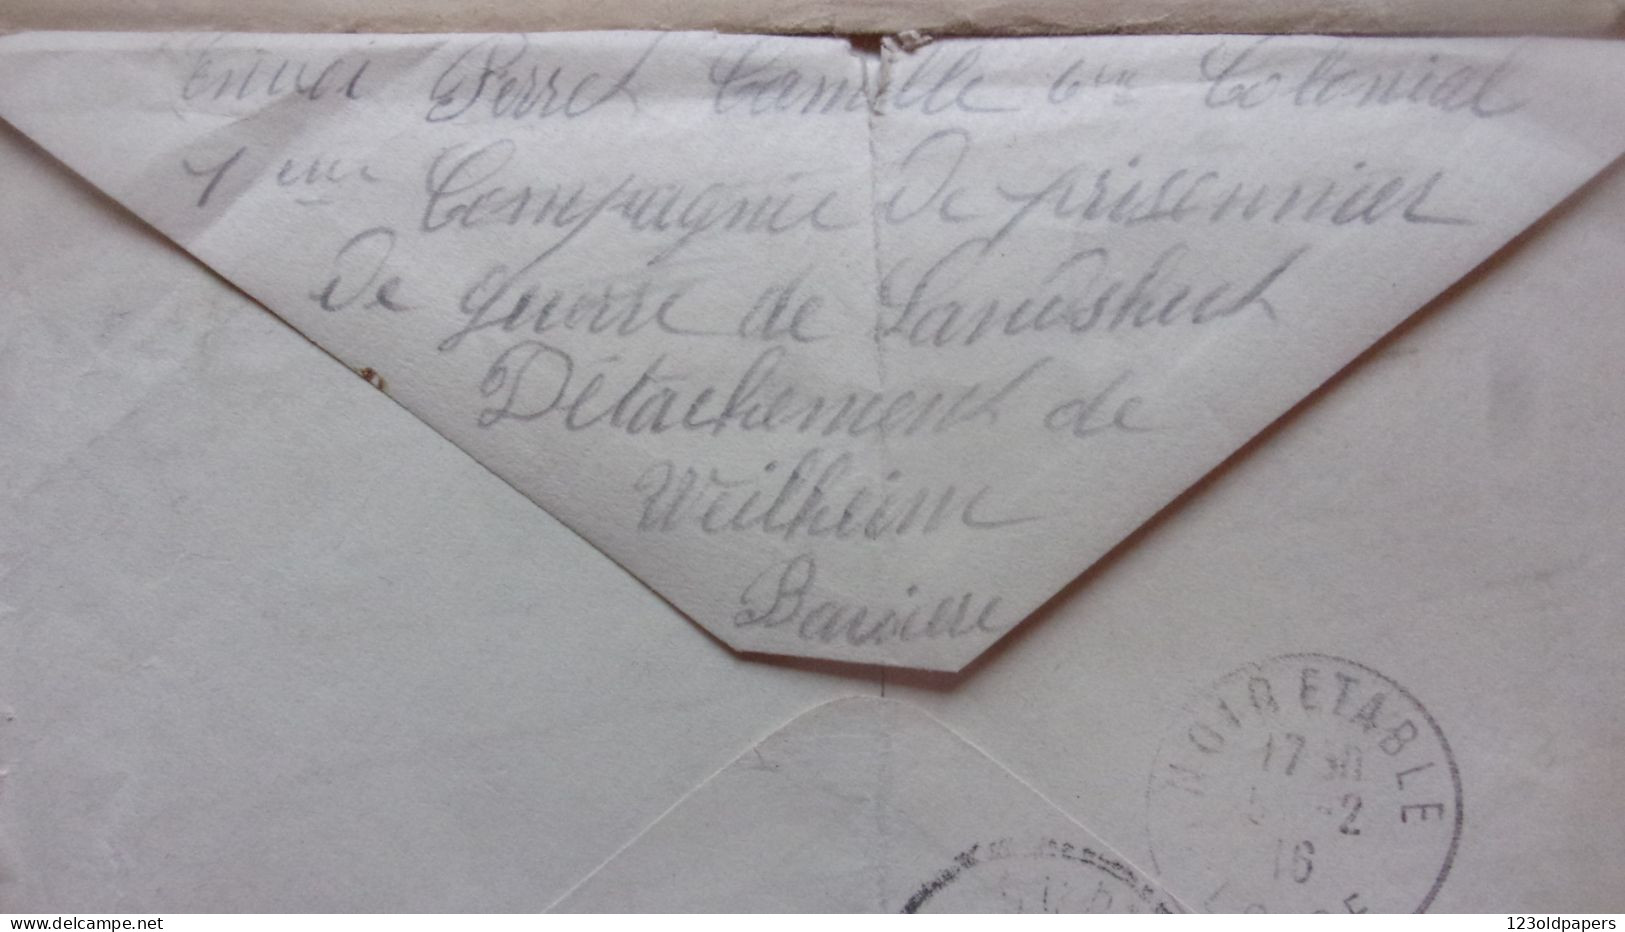 Envoi Perret Camille 6me Colonial
1ere Compagnie de prisonnier
de guerre de Landshut
Détachement de
Weilheim
Bavière
NOIRETABLE
17 30
5 -2
16
LOIRE
123oldpapers